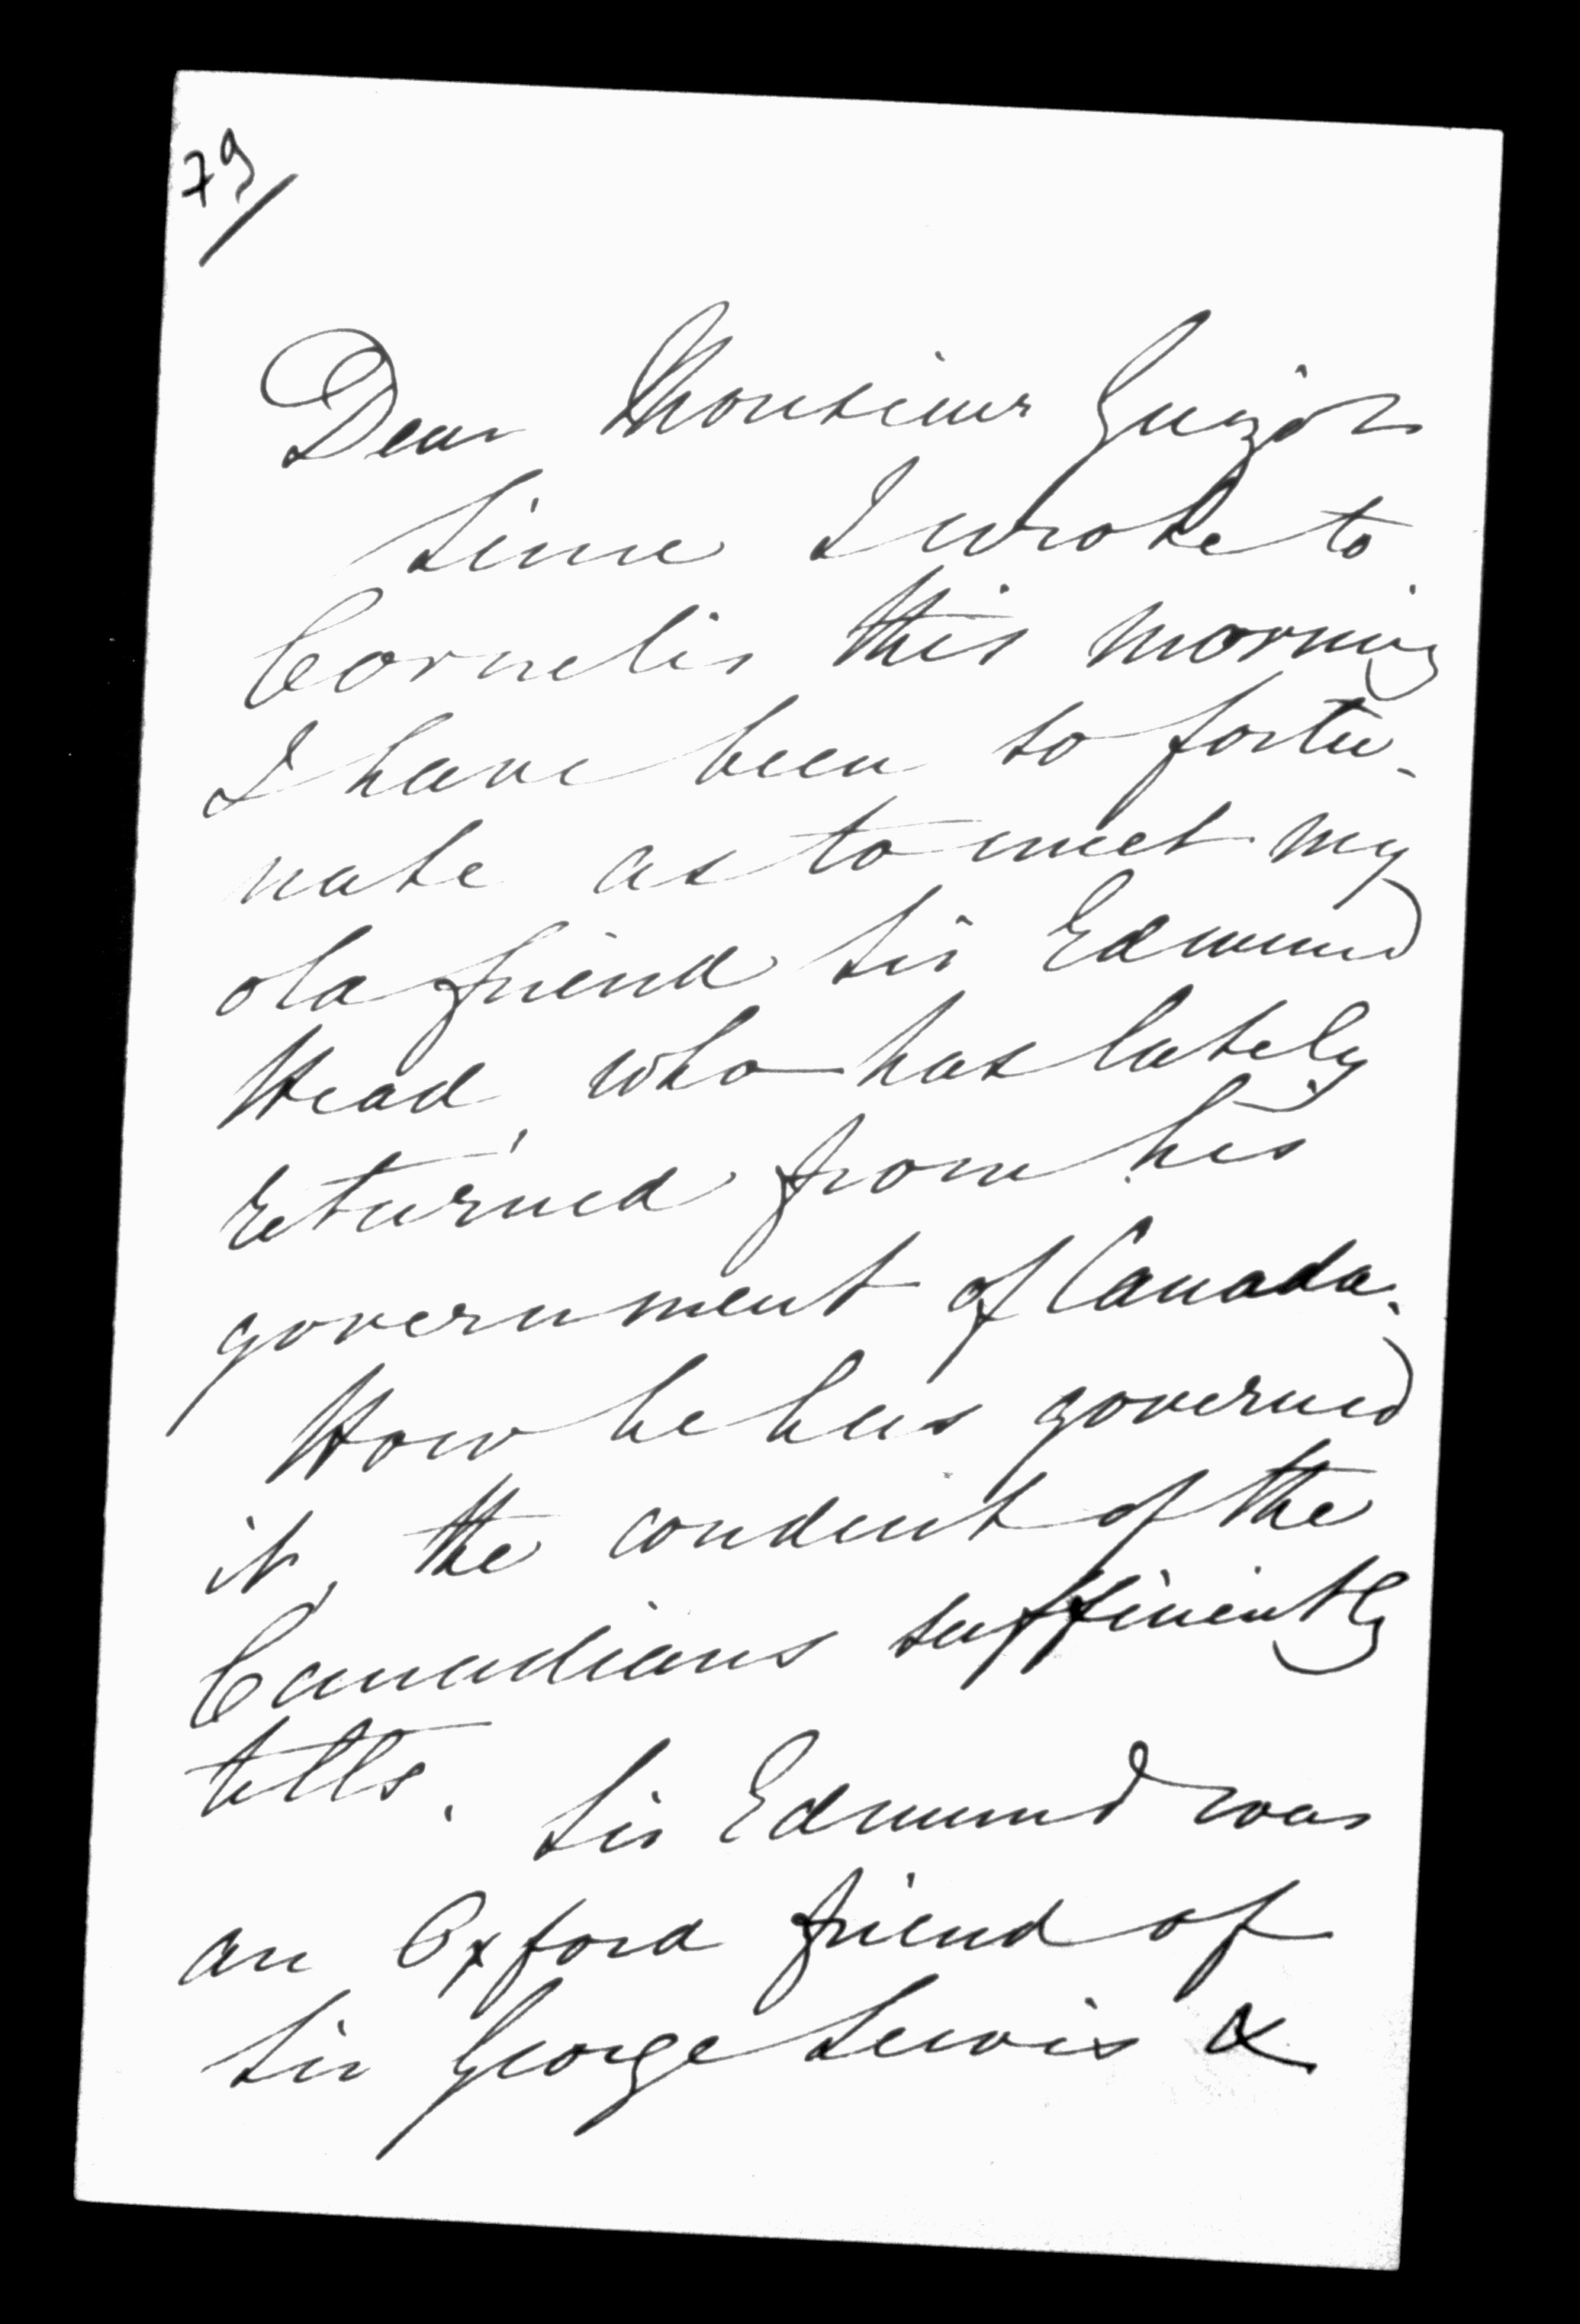 79/
Dear Monsieur Guizot
Since I wrote to
Cornelis this morning
I have been so fortu-
nate as to meet my
old friend Sir Edmund
Head who has lately
returned from his
government of Canada.
How he has governed
it, the conduct of the
Canadians sufficiently
tells. Sir Edmund was
an Oxford friend of
Sir George Lewis &